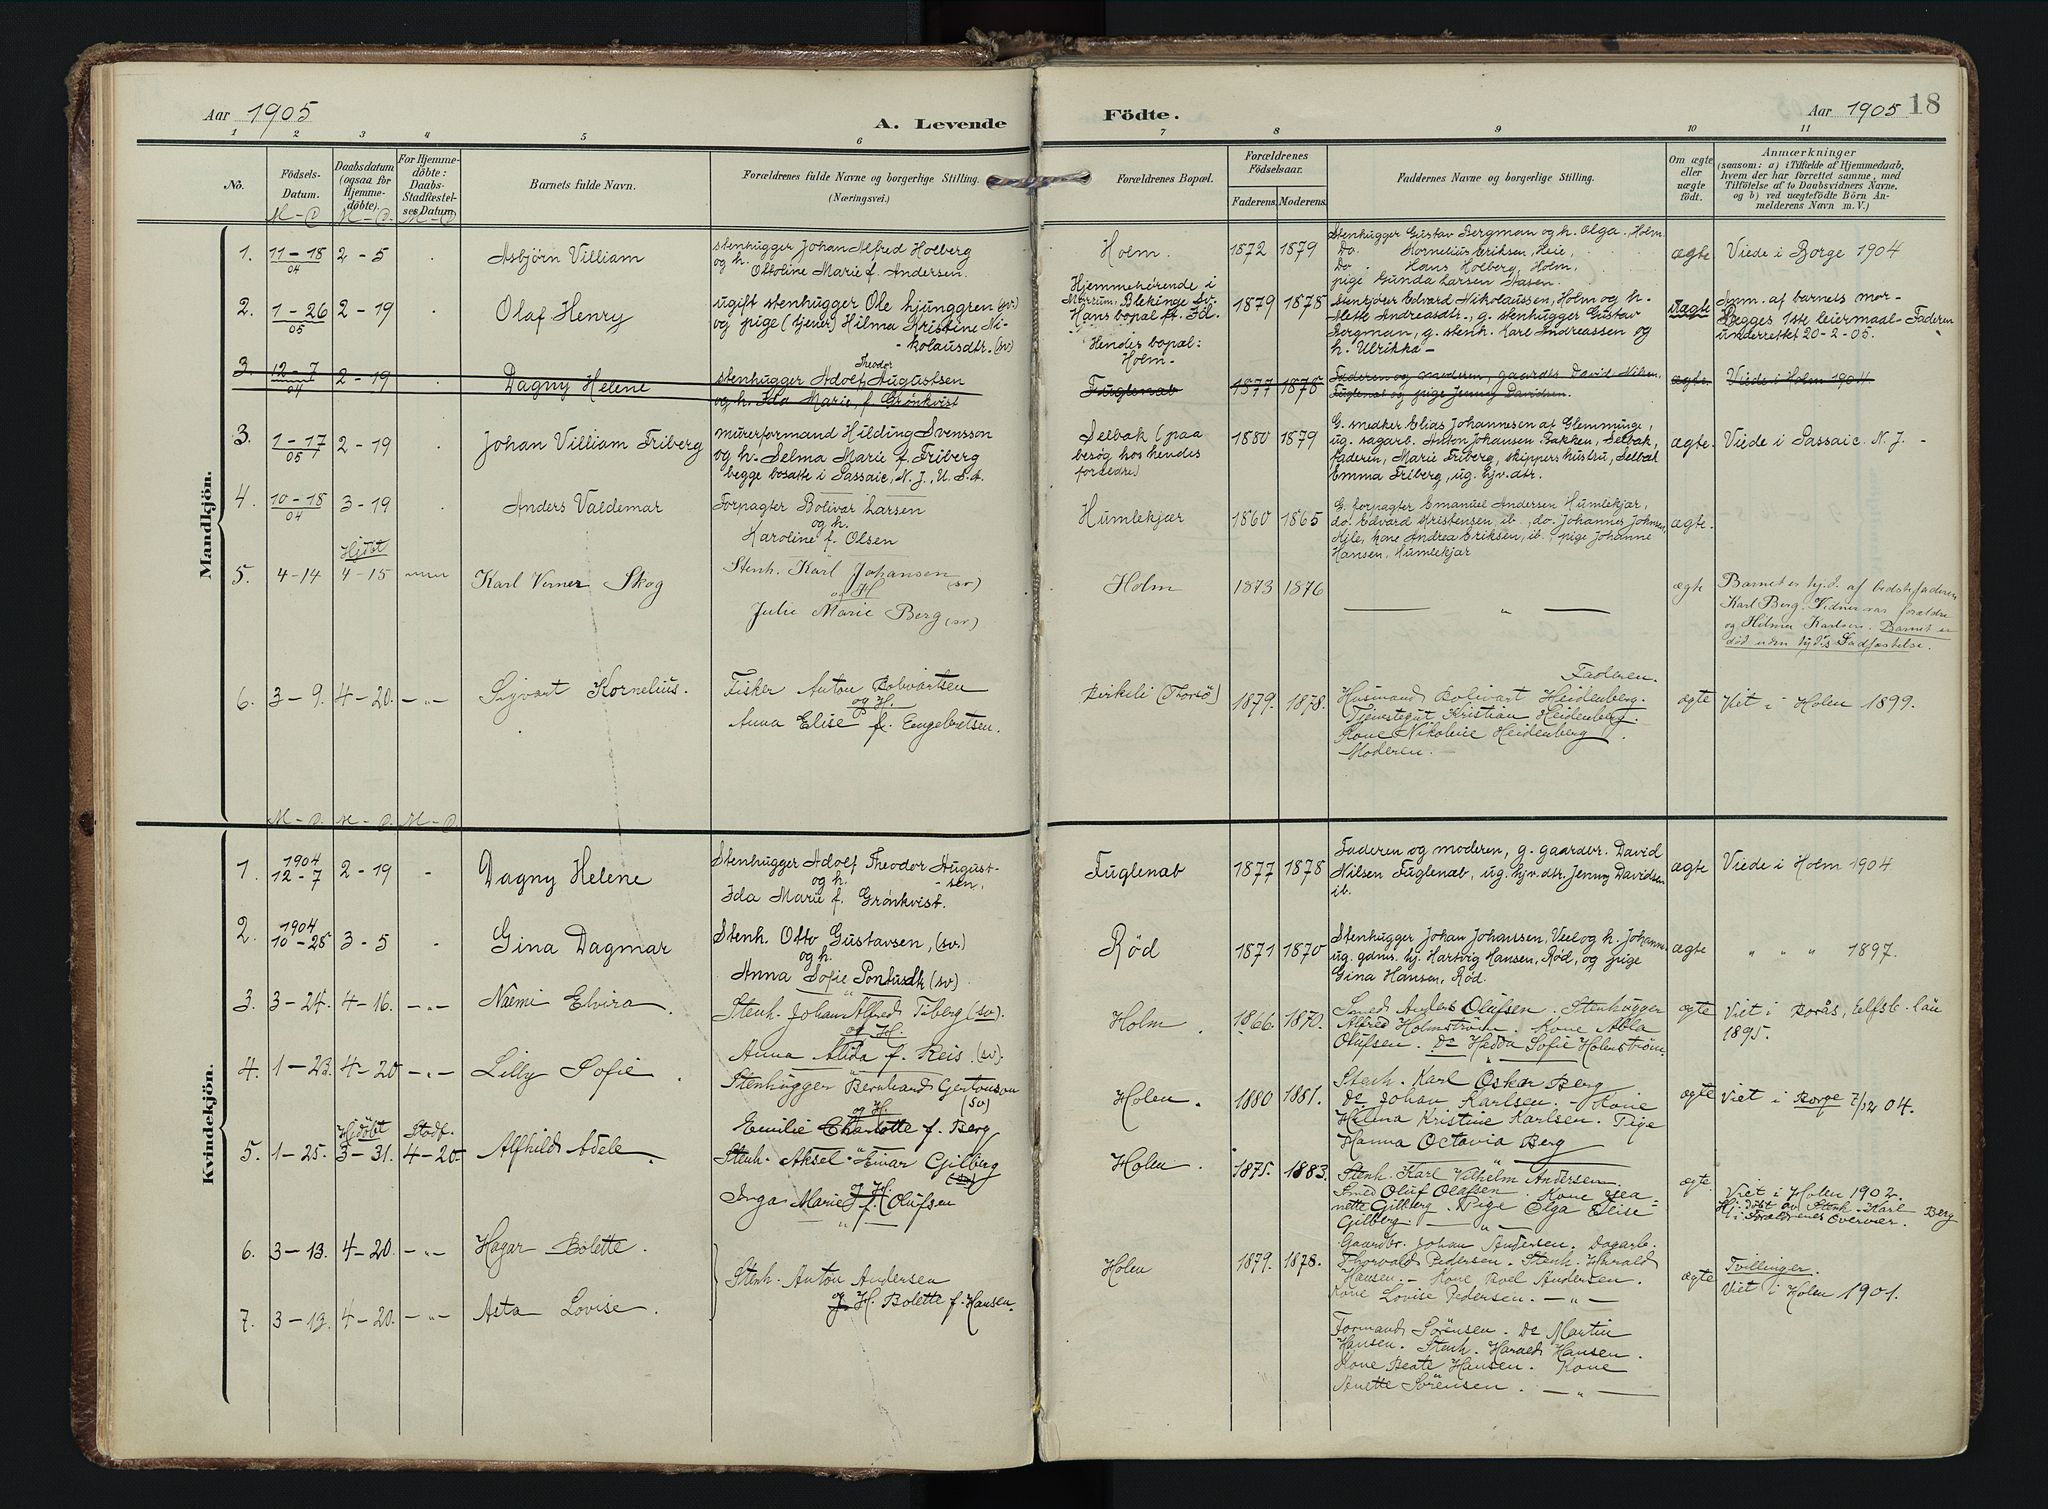 Aar 1905
A. Levende
Födte.
Aar 1905
18
1 2 3 4 5 6 7 8 9 10 11
No.
Födsels-
Datum.
M – D
Daabsdatum
(ogsaa for
Hjemme-
döbte).
M – D.
For Hjemme-
döbte:
Daabs-
Stadfæstel-
ses Datum.
M – D
Barnets fulde Navn.
Forældrenes fulde Navne og borgerlige Stilling.
(Næringsvei.)
Forældrenes Bopæl.
Forældrenes
Födselsaar.
Faderens.
Moderens.
Faddernes Navne og borgerlige Stilling.
Om ægte
eller
uægte
födt.
Anmærkninger
(saasom: a) i Tilfælde af Hjemmedaab,
hvem der har forrettet samme, med
Tilföielse af to Daabsvidners Navne.
og b) ved uægtefödte Börn An-
melderens Navn m. V.)
Mandkjön.
1. 11–18
04
2–5
Asbjörn Villiam
stenhugger Johan Alfred Holberg
og h.
Ottoline Marie f. Andersen.
Holm.
1872 1879
Stenhugger Gustav Bergman og h. Olga, Holm.
Do. Kornelius Eriksen, Heie,
Do. Hans Holberg, Holm,
pige Gunda Larsen
ægte
Viede i Borge 1904
2. 1–26
05
2–19
Olaf Henry
ugift stenhugger Ole Ljunggren (sv)
og pige (tjener) Hilma Kristine Ni-
kolausdtr. (sv)
Hjemmehörende i
Blekinge Sv.
Hans bopæl
Hendes bopæl:
Holm.
1879 1878
Edvard Nikolaussen, Holm og h.
Andreasdtr., g. stenhugger Gustav
Bergman, g. stenh. Karl Andreassen og
h. Ulrikka –
uægte
Anm. af barnets mor –
Begges 1ste leiermaal – Faderen
underrettet 20-2-05.
3. 12–7
04
2–19
Dagny Helene
Theodor
stenhugger Adolf Augustsen
og h. Ida Marie, f. Grönkvist
Fuglenab
1877 1878
Faderen og moderen, gaardb. David Nilsen,
Fuglenab og pige Jenny Davidsen.
ægte.
Viede i Holm 1904
3. 1–17
05
2–19
Johan Villiam Friberg
murerformand Hilding Svensson
og h. Selma Marie f. Friberg
begge bosatte i Passaic, N. J., U. S. A.
Selbak (paa
besög hos hendes
forældre)
1880 1879
G. smedker Elias Johannesen af Glemminge,
ug. sagarb. Anton Johansen Bakken, Selbak,
faderen, Marie Friberg, skippers hustru, Selbak
Emma Friberg, ug. hjv. dtr.
ægte.
Viede i Passaic. N. J. –
4. 10–18
04
3–19
Anders Valdemar
Forpagter Bolivar Larsen
og h.
Karoline f. Olsen
Humlekjær
1860 1865
G. forpagter Emanuel Andersen Humlekjær,
do. Edvard Kristensen, ib., do. Johannes Johnsen,
Kjile, kone Andrea Eriksen, ib., pige Johanne
Hansen, Humlekjær
ægte.
Hjdöbt
5. 4–14
4–15
Karl Verner Skog
Stenh. Karl Johansen (sv)
og H
Julie Marie Berg (sv)
Holm
1873 1876
— „ —
ægte
Barnet er hj.d. af bedstefaderen
Karl Berg. Vidner var forældre
og Hilmer Karlsen. Barnet er
död uden Stadfæstelse.
6. 3–9.
4–20.
–„–
Sigvart Kornelius.
Fisker Anton Bolvartsen
og H.
Anna Elise f. Engebretsen.
Birkeli (Thorsö)
1879. 1878.
Faderen.
Husmand Bolivart Heidenberg.
Tjenestegut Kristian Heidenberg.
Kone Nikoline Heidenberg.
Moderen. –
ægte
Viet i Holm 1899.
M–D. M–D. M–D.
Kvindekjön.
1. 1904
12–7
2–19
Dagny Helene
Stenhugger Adolf Theodor August-
sen.
og h.
Ida Marie f. Grönkvist.
Fuglenab
1877 1878
Faderen og moderen, g. gaardbr. David
Nilsen Fuglenab, ug. hjv. dtr. Jenny Davidsen
ib.
ægte
Viede i Holm 1904.
2. 1904
10–25
3–5
Gina Dagmar
Stenh. Otto Gustavsen, (sv.)
og h.
Anna Sofie Pontusdtr (sv)
Röd
1871 1870
Stenhugger Johan Johansen, Veel og h. Johanne
ug. gdms. hj. Hartvig Hansen, Röd, og pige
Gina Hansen, Röd.
ægte
„ „ „ 1897.
3. 3–24.
4–16.
–„–
Naemi Elvira.
Stenh. Johan Alfred Fiberg (sv)
og H.
Anna Alida f. Reis. (sv).
Holm.
1866. 1870.
Smed Anders Olufsen. Stenhugger
Alfred Holmström. Kone Abla
Olufsen. Do Hedda Sofie Holmström.
ægte
Viet i Borås, Elfsb. län
1895.
4. 1–23.
4–20
–„–
Lilly Sofie.
Stenhugger Bernhard Gertonson
(sv)
og H.
Emilie Charlotte f. Berg
Holm.
1880 1881.
Stenh. Karl Oskar Berg
Do Johan Karlsen. – Kone
Helma Kristine Karlsen. Pige
Hanna Octavia Berg
ægte
Viet i Borge 7/12 04.
Hjdöbt Stadf.
5. 1–25.
3–31.
4–20.
Alfhild Adele.
Stenh. Aksel Einar Gilberg
(sv)
og H.
Inga Marie f. Olufsen
Holm.
1875. 1883.
Stenh. Karl Vilhelm Andersen
Smed Oluf Olafsen. Kone Jea-
nette Gilberg. Pige Olga Elise
Gilberg. – „ –
ægte
Viet i Holm 1902.
Hj. döbt av Stenh. Karl Berg
i Forældrenes Overvær.
6. 3–13.
4–20.
–„–
Hagar Bolette.
Stenh. Anton Andersen
og H. Bolette f. Hansen.
Holm
1879. 1878.
Gaardbr. Johan Andersen. Dagarb.
Thorvald Pedersen. Stenh. Harald
Hansen. – Kone Andersen.
Kone Lovise Pedersen. – „ –
ægte
Tvillinger.
Viet i Holm 1901.
7. 3–13.
4–20.
–„–
Asta Lovise.
Formand Sörensen. Do Martin
Hansen. Stenh. Harald Hansen.
Kone Beate Hansen. Kone
Anette Sörensen. – „ –